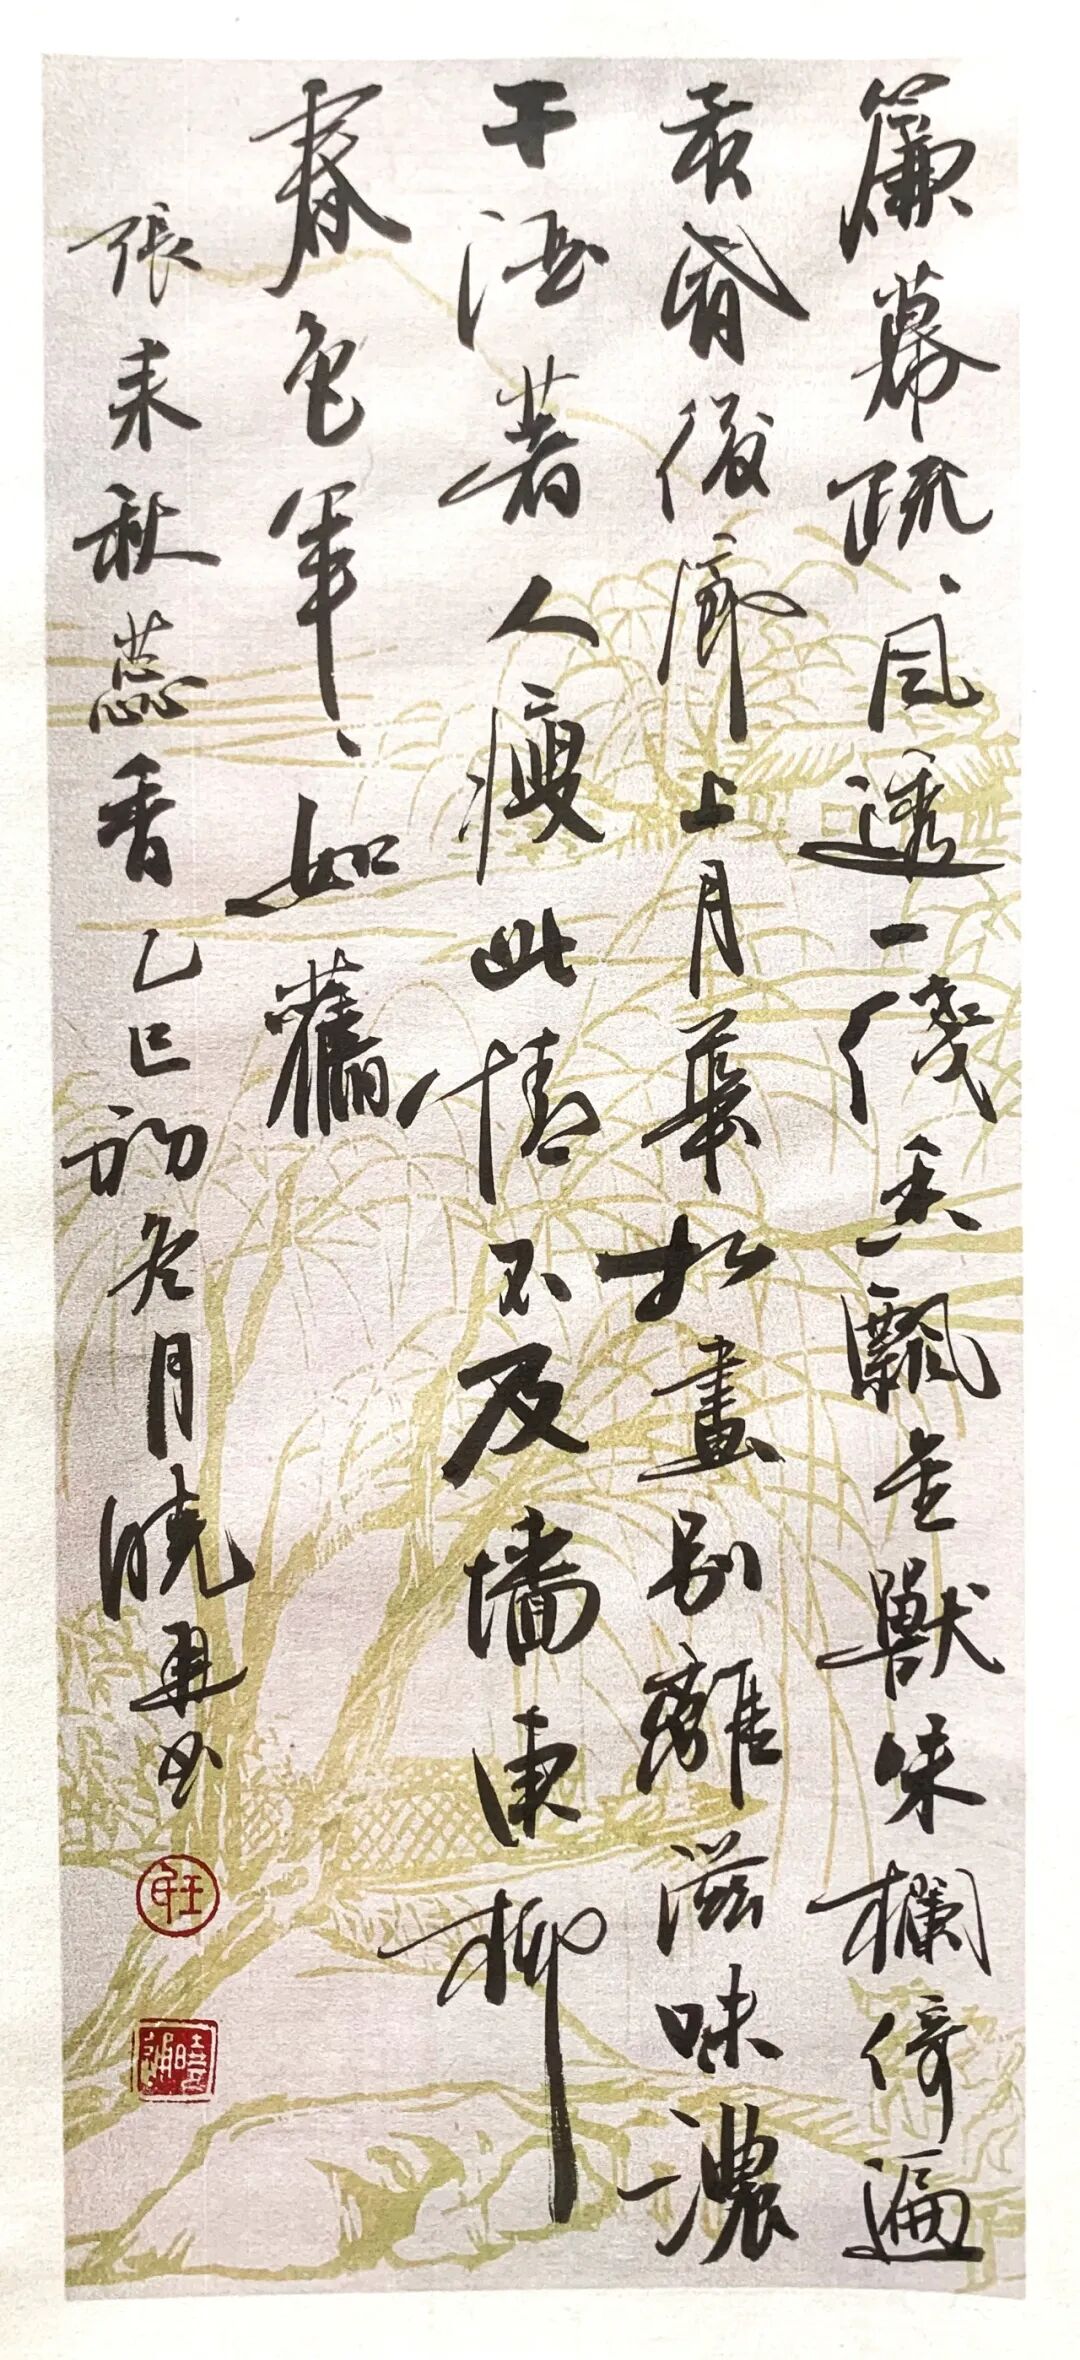 簾幕疏、風透一線香飄金獸朱欄倚遍
黃昏後廊上月華如晝別離滋味濃
于酒著人瘦此情不及墻東柳
春色年、如舊
張耒秋蕊香乙巳初冬月曉